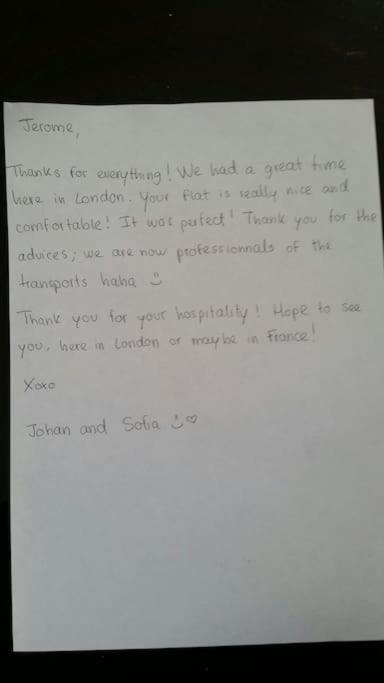 Jerome,
Thanks for everything! We had a great time
here in London. Your flat is really nice and
comfortable! It was perfect! Thank you for the
advices; we are now professionnals of the
transports haha :)
Thank you for your hospitality! Hope to see
you, here in London or maybe in France!
Xoxo
Johan and Sofia :) ♡